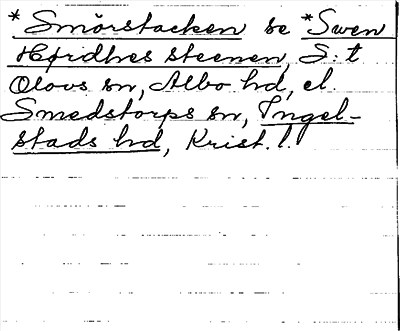 *Smörstacken se *Swen
Hordhes steenen, S:t
Olovs sn, Albo hd, el.
Smedstorps sn, Ingel-
stads hd, Krist. l.